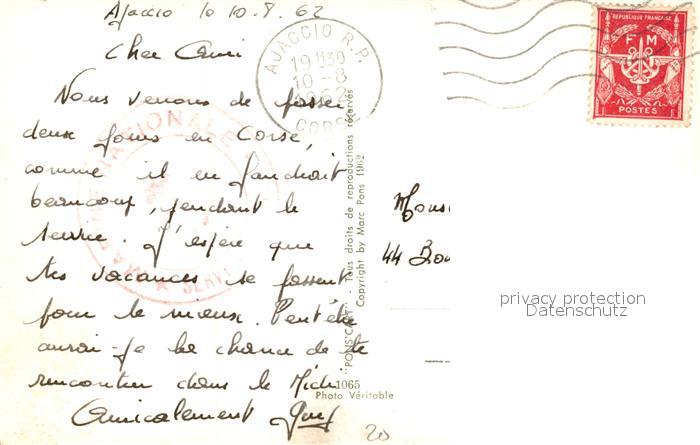 Ajaccio le 10.8.62
Cher Ami
Nous venons de passer
deux jours en Corse,
comme il en faudrait
beaucoup, pendant le
service. J'espère que
tes vacances se passent
pour le mieux. Peut être
aurai-je la chance de te
rencontrer dans le Midi
Amicalement
20
AJACCIO R.P.
19H30
10-8
1962
CORSE
NATIONALE
MARINE
SERV
"PONS'CART" - Tous droits de reproductions réservés
Copyright by Marc Pons 1962
1065
Photo Véritable
REPUBLIQUE FRANÇAISE
F M
POSTES
Mons
44 Bou
privacy protection
Datenschutz